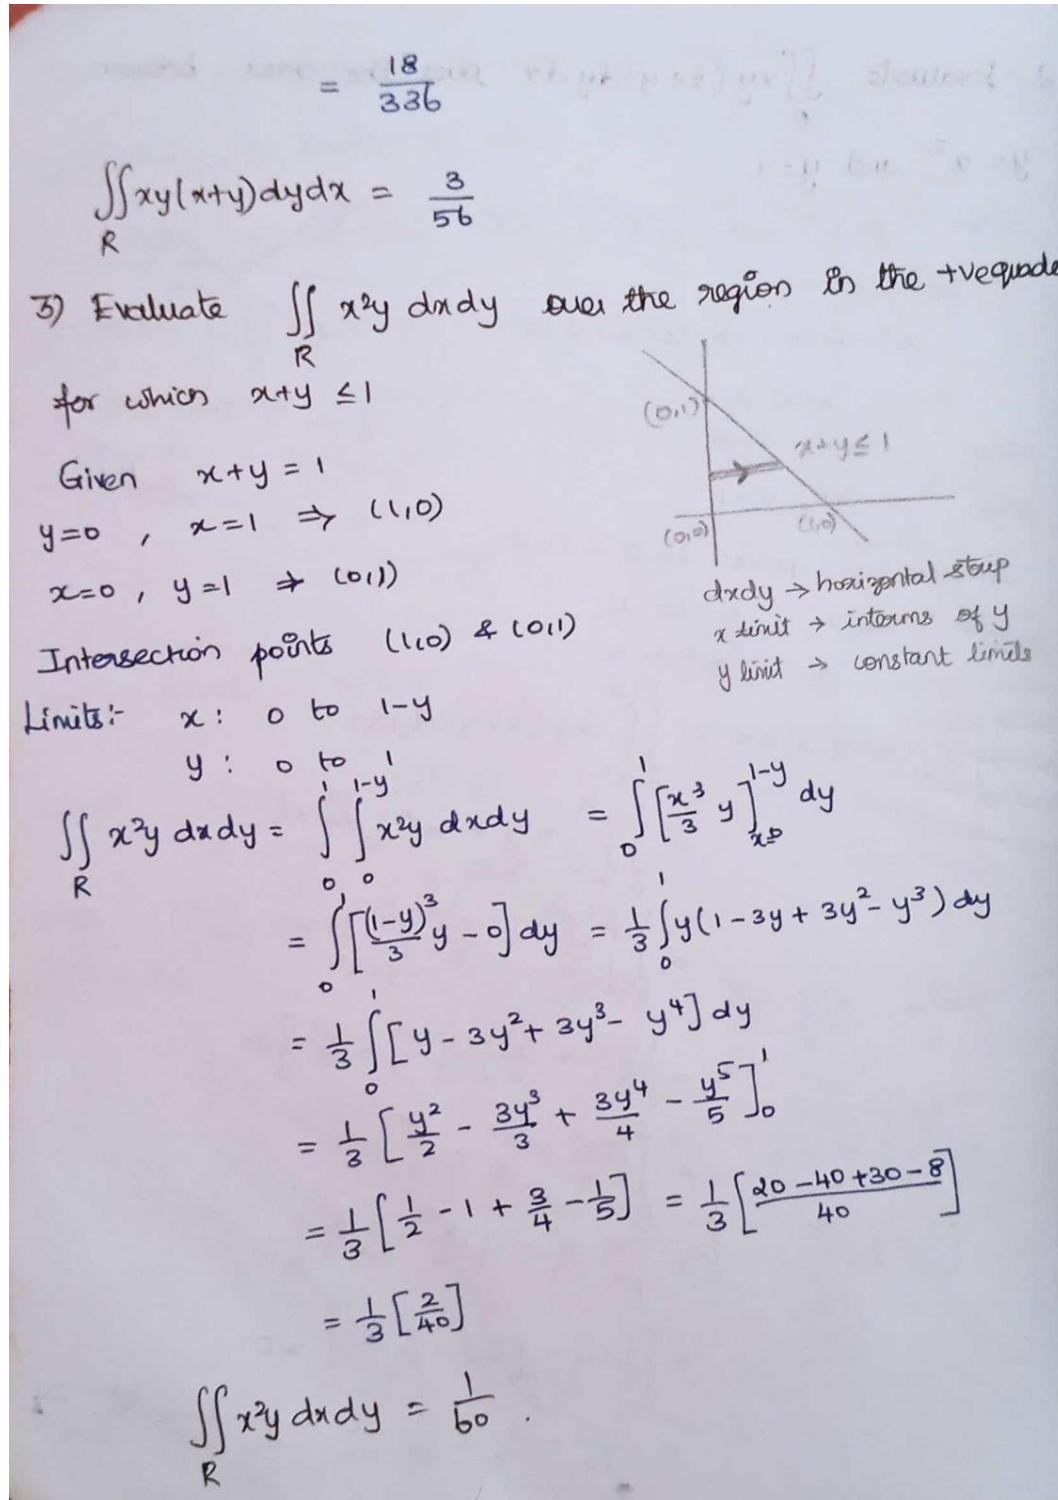 = 18/336
∬_R xy(x+y)dydx = 3/56
3) Evaluate ∬_R x²y dxdy over the region in the +ve quade
for which x+y ≤ 1
Given x+y = 1
y=0 , x=1 ⇒ (1,0)
x=0 , y=1 ⇒ (0,1)
Intersection points (1,0) & (0,1)
(0,1)
x+y≤1
(0,0)
(1,0)
dxdy → horizontal strip
x limit → interms of y
y limit → constant limits
Limits:- x : 0 to 1-y
y : 0 to 1
∬_R x²y dxdy = ∫_0^1 ∫_0^{1-y} x²y dxdy = ∫_0^1 [x³/3 y]_{x=0}^{1-y} dy
= ∫_0^1 [(1-y)³/3 y - 0] dy = 1/3 ∫_0^1 y(1-3y+3y²-y³) dy
= 1/3 ∫_0^1 [y - 3y² + 3y³ - y⁴] dy
= 1/3 [y²/2 - 3y³/3 + 3y⁴/4 - y⁵/5]_0^1
= 1/3 [1/2 - 1 + 3/4 - 1/5] = 1/3 [20-40+30-8/40]
= 1/3 [2/40]
∬_R x²y dxdy = 1/60 .